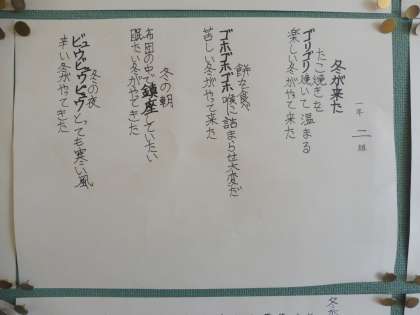 一年 二組
冬が来た
たこ焼きを
ゴリゴリ焼いて温まる
楽しい冬がやって来た
餅を食べ
ゴホゴホゴホ喉に詰まらせ大変だ
苦しい冬がやって来た
冬の朝
布団の中で鎮座していたい
眠たい冬がやってきた
冬の夜
ビュウビュウビュウとっても寒い風
辛い冬がやってきた